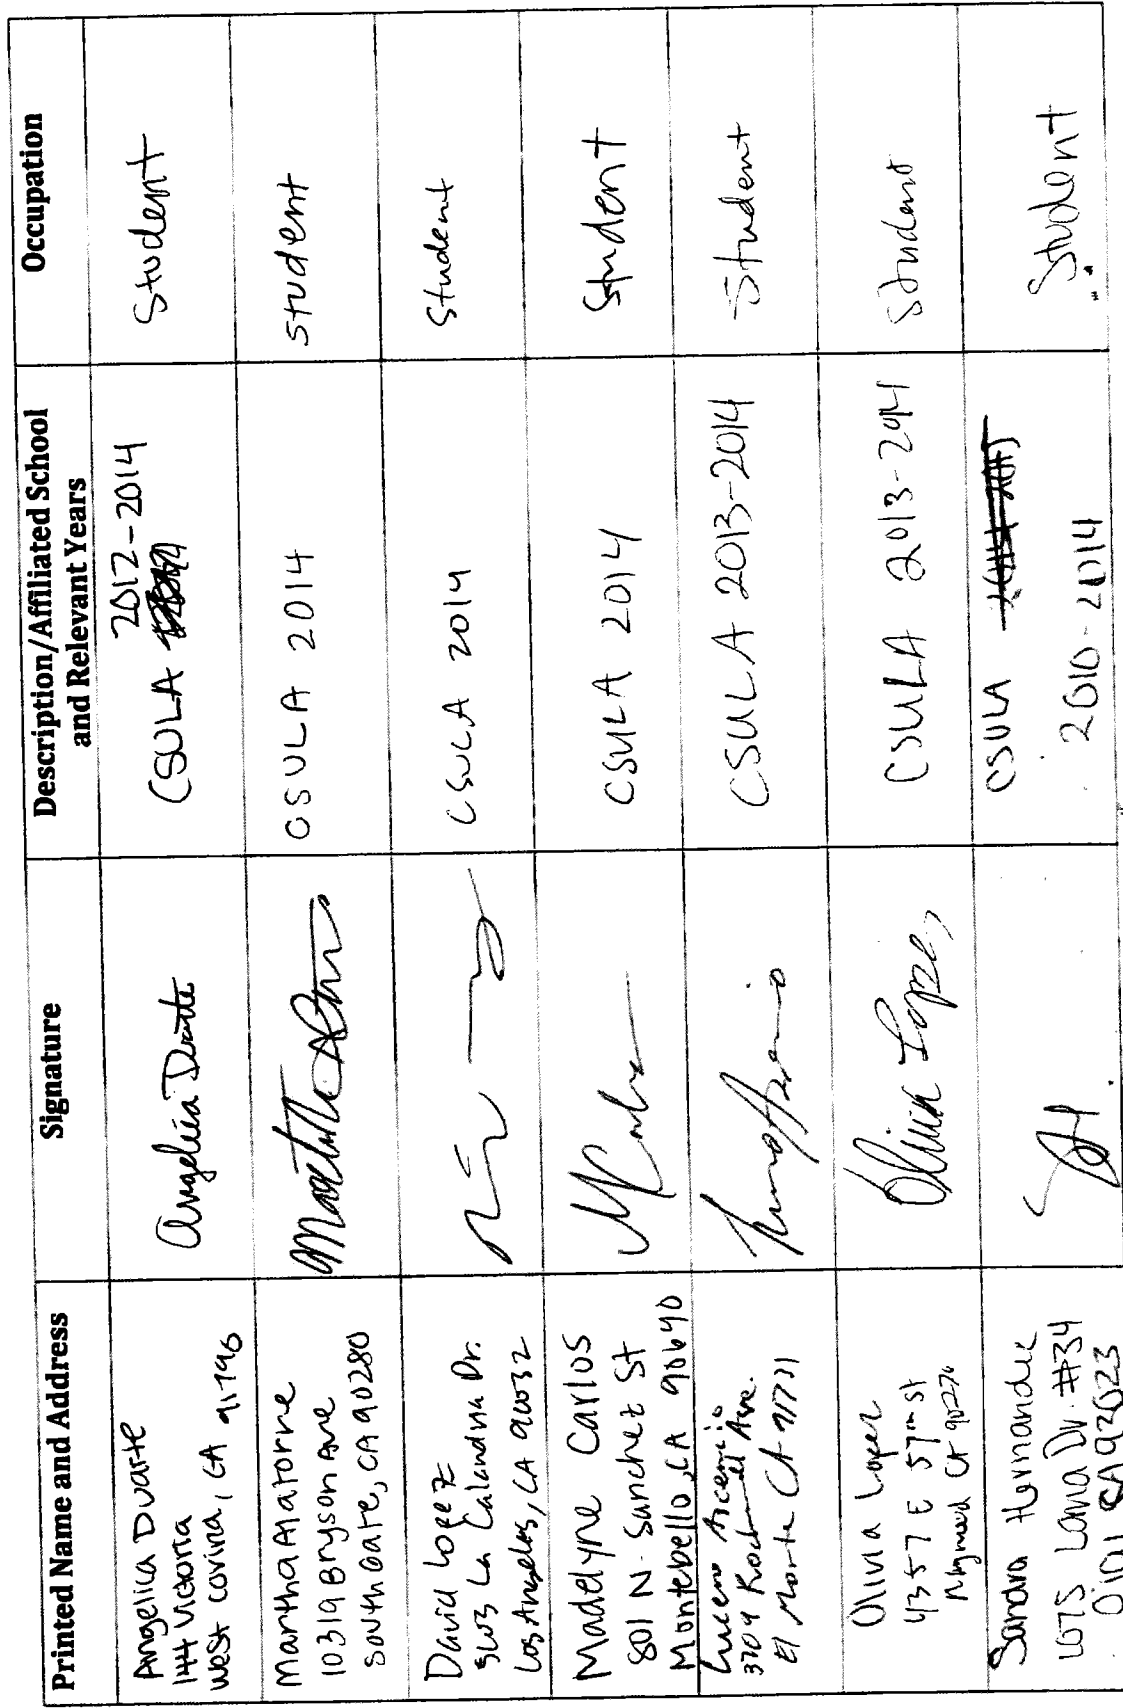 Printed Name and Address
Signature
Description/Affiliated School
and Relevant Years
Occupation
Angelica Duarte
144 Victoria
West Covina, CA 91790
Angelica Duarte
2012-2014
CSULA
Student
Martha Alatorre
10319 Bryson Ave
South Gate, CA 90280
CSULA 2014
student
David Lopez
La Calandria Dr.
Los Angeles, CA 90032
CSULA 2014
Student
Madelyne Carlos
801 N. Sanchez St
Montebello, CA 90640
CSULA 2014
Student
Lucero Ascencio
3704 Ave.
El Monte CA 91731
CSULA 2013-2014
Student
Olivia Lopez
4357 E 57th St
CA 90270
Olivia Lopez
CSULA 2013-2014
Student
Sandra Hernandez
Dr. #34
CA 92023
CSULA
2010-2014
Student